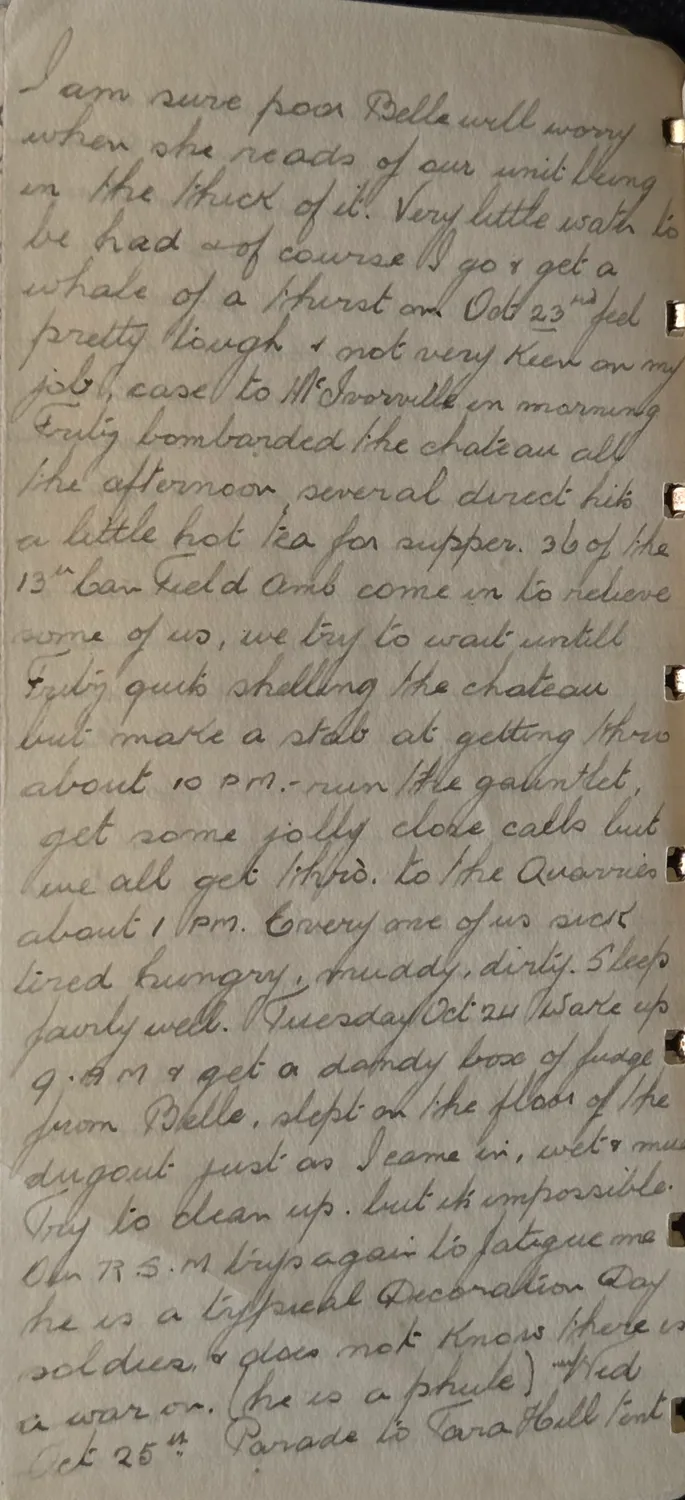 I am sure poor Belle will worry
when she reads of our unit being
in the thick of it. Very little water to
be had & of course I go & get a
whale of a thirst on Oct 23rd feel
pretty tough & not very keen on my
job, case to McIvorville in morning
Fritz bombarded the chateau all
the afternoon, several direct hits
a little hot tea for supper. 36 of the
13th Can Field Amb come in to relieve
some of us, we try to wait untill
Fritz quits shelling the chateau
but make a stab at getting thro
about 10 PM.- run the gauntlet,
get some jolly close calls but
we all get thro. to the Quarries
about 1 PM. Every one of us sick
tired hungry, muddy, dirty. Sleep
fairly well. Tuesday Oct 24 Wake up
9. A M & get a dandy box of fudge
from Belle, slept on the floor of the
dugout just as I came in, wet &
Try to clean up. but its impossible.
Our R.S.M trys again to fatigue me
he is a typical Decoration Day
soldier, & does not know there is
a war on. (he is a phule) Wed
Oct 25th Parade to Tara Hill tent